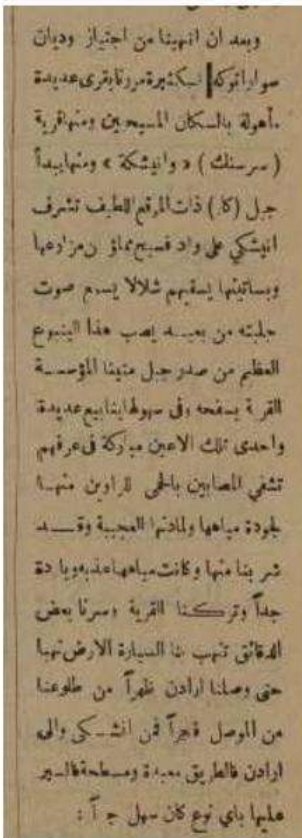 وبعد ان انتهينا من اجتياز وديان
سواراتوكه الكثيرة مررنا بقرى عديدة
مأهولة بالسكان المسيحيين ومنها قرية
(سرسنك) « وانيشكة » ومنها يبدأ
جبل (كا.) ذات الموقع اللطيف تشرف
انيشكي على واد فسيح مزارعها
وبساتينها يسقيهم شلالا يسمع صوت
جلبته من بعيد يصب هذا الينبوع
العظيم من صدر جبل متينا المؤسسة
القرية بسفحه وفى سهولها ينابيع عديدة
واحدى تلك الاعين مباركة فى عرفهم
تشفي المصابين بالحمى منها
لجودة مياهها ولمادتها العجيبة وقد
شربنا منها وكانت مياهها عذبه وباردة
جداً وتركنا القرية وسرنا بعض
الدقائق تنهب بنا السيارة الارض نهبا
حتى وصلنا ارادن ظهراً من طلوعنا
من الموصل فجراً فمن انشكى والى
ارادن فالطريق معبدة ومسطحة فالسير
عليها باي نوع كان سهل جداً :